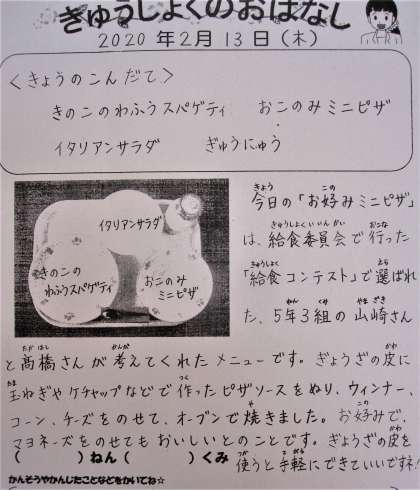 きゅうしょくのおはなし
2020年2月13日(木)
<きょうのこんだて>
きのこのわふうスパゲティ おこのみミニピザ
イタリアンサラダ ぎゅうにゅう
イタリアンサラダ
きのこの
わふうスパゲティ
おこのみ
ミニピザ
きょう この
今日の「お好みミニピザ」
きゅうしょくいいんかい おこな
は、給食委員会で行った
きゅうしょく えら
「給食コンテスト」で選ばれ
ねん くみ やまざき
た、5年3組の山崎さん
たかはし かんが かわ
と高橋さんが考えてくれたメニューです。ぎょうざの皮に
たま つく
玉ねぎやケチャップなどで作ったピザソースをぬり、ウィンナー、
や この
コーン、チーズをのせて、オーブンで焼きました。お好みで、
かわ
マヨネーズをのせてもおいしいとのことです。ぎょうざの皮を
( )ねん( )くみ
つか てがる
使うと手軽にできていいですネ!
かんそうやかんじたことなどをかいてね☆